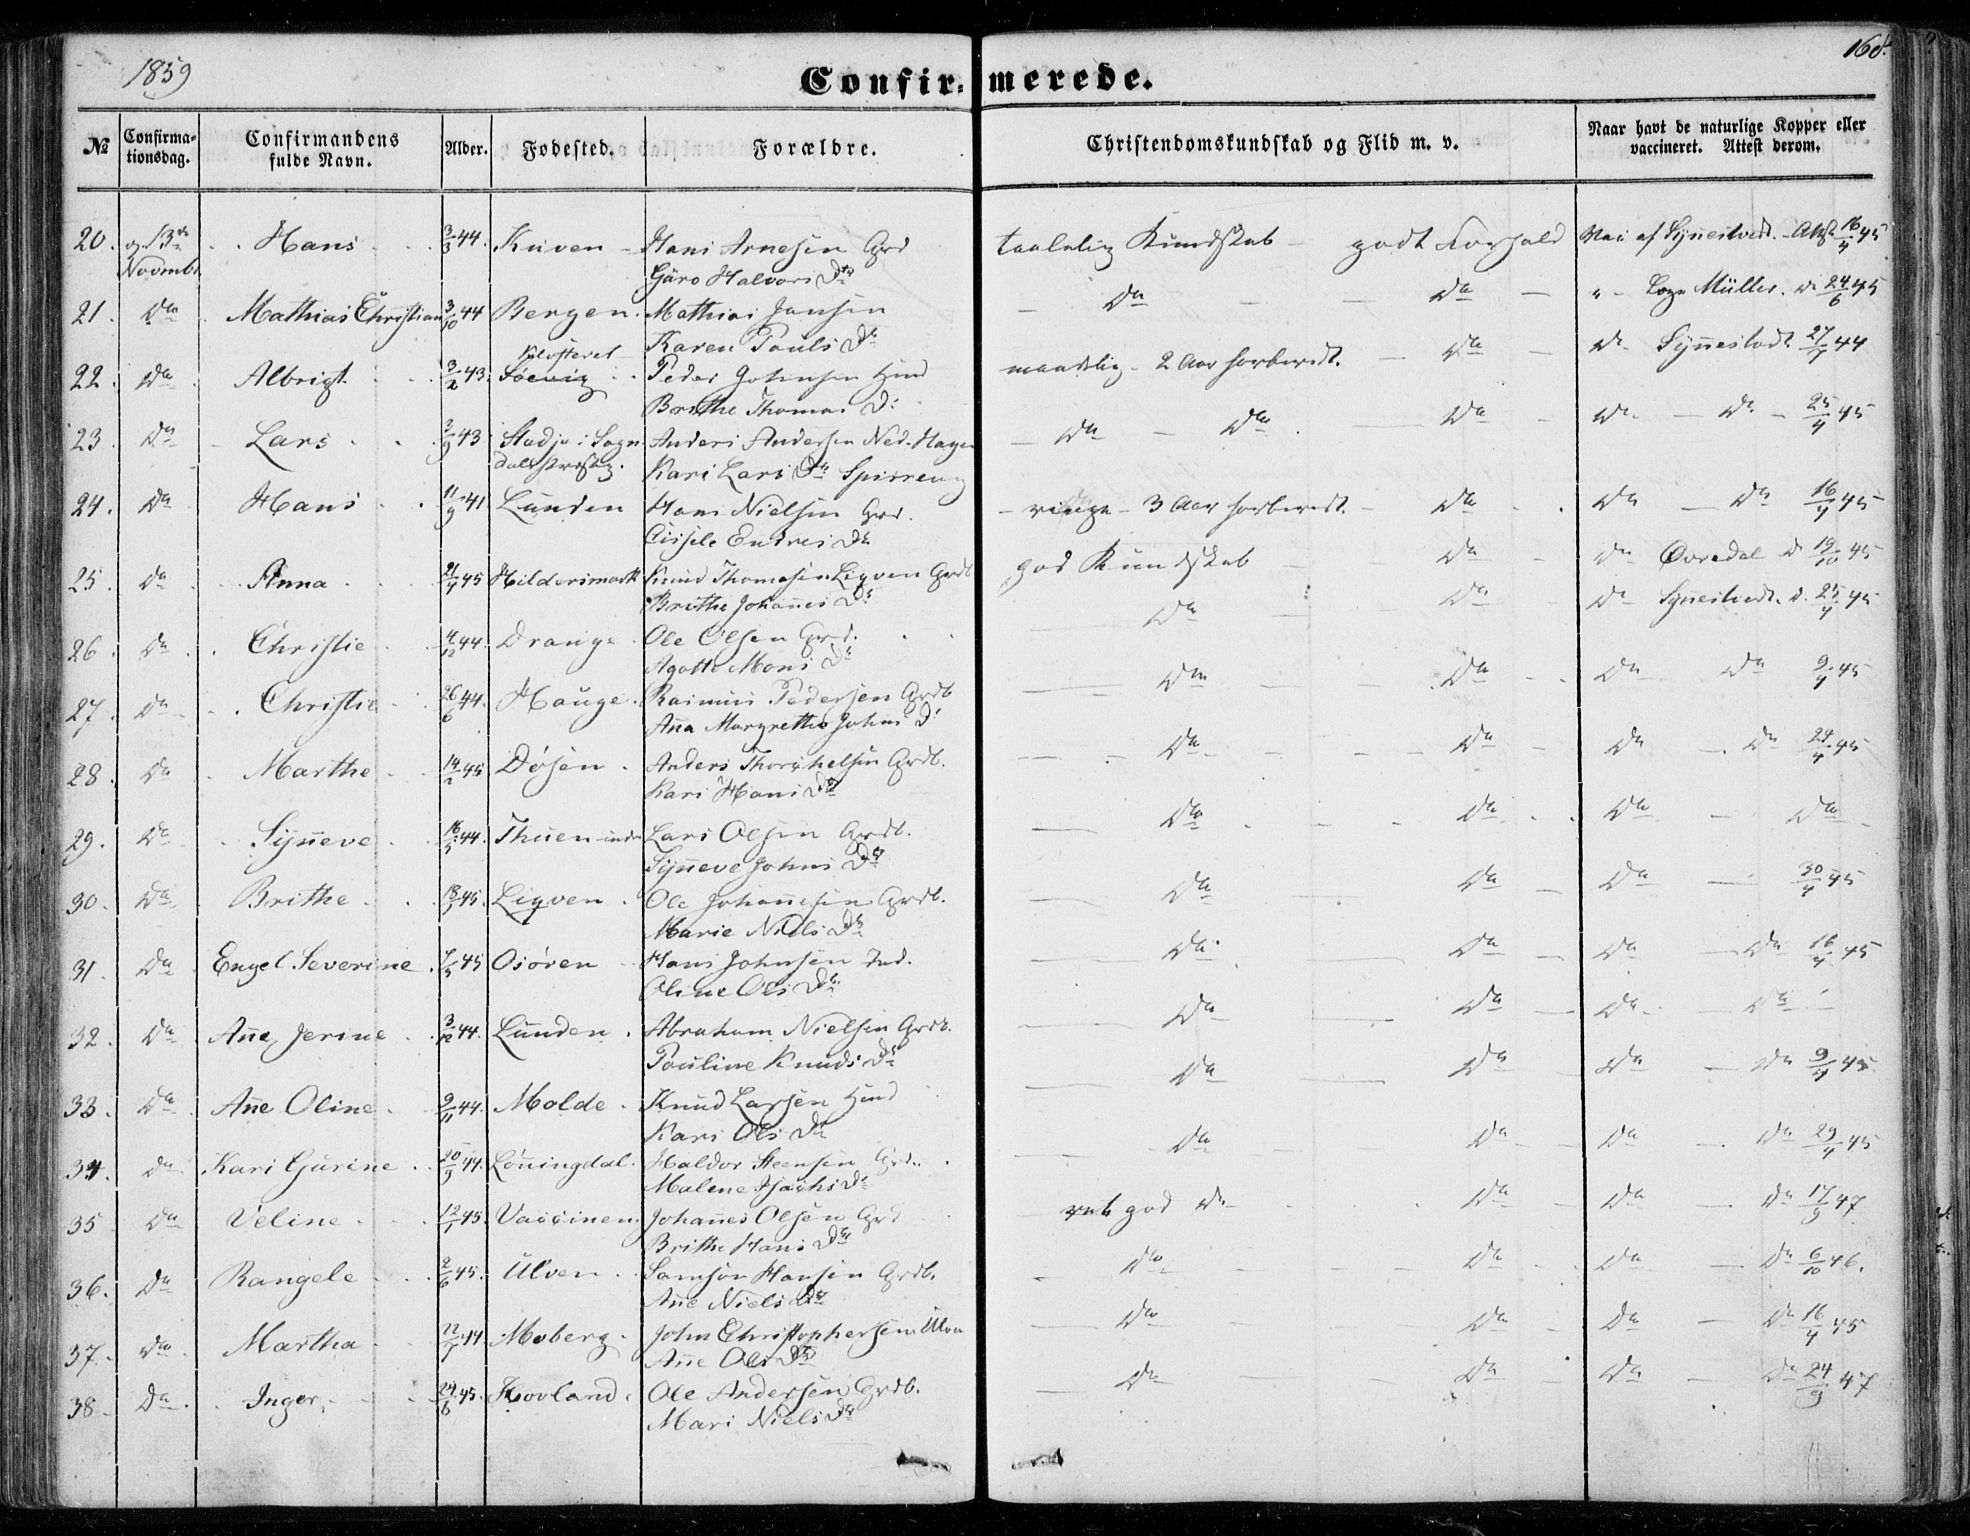 1859
168.
Confirmerede.
No
Confirmationsdag.
Confirmandens fulde Navn.
Alder.
Fødested.
Forældre.
Christendomskundskab og Flid m. v.
Naar havt de naturlige Kopper eller vaccineret. Attest derom.
20. 13de Hans 3/3 44. Kuven Hans Arnesen Grd taalelig Kundskab godt Forhold Vac af Synnestvedt Att. 16/4 45
Novmbr. Guro Halvors Dr
21. Do Mathias Christian 3/10 44 Bergen. Mathias Jansen Do Do Müller. Do 24/6 45
Karen Pouls Dr
22. Do Albrigt 3/2 43. Klosteret Søevig Peder Johnsen Huusmd maadelig 2 Aar forberedt. Do Do Synnestvedt 27/7 44
Brithe Thomas Dr
23 Do Lars 3/9 43 Stadje i Sogn Anders Andersen Ned. Hagen Do Do Do Do Do 25/4 45
dals Kari Lars Dr
24. Do Hans 11/9 41 Lunden Hans Nielsen Grd. ringe 3 Aar forberedt. Do Do Do 16/4 45
Cissele Endres Dr
25. Do Anna 21/4 45 Hildersmark Knud Thomasen Liqven Grdb god Kundskab Do Do Øvredal Do 19/10 45
Brithe Johannes Dr
26. Do Christie 4/12 44. Drange Ole Olsen Grd. Do Do Do Synnestvedt. Do 25/4 45
Agathe Mons Dr
27. Do Christie 26/6 44. Hauge. Rasmus Pedersen Grdb Do Do Do Do 9/4 45
Ana Margrethe Johns Dr
28. Do Marthe 14/2 45 Døsen. Anders Thorkelsen Grdb. Do Do Do Do 24/4 45
Kari Hans Dr
29. Do Synneve 16/5 44. Thuen indre Lars Olsen Grdb. Do Do Do Do
Synneve Johns Dr
30. Do Brithe 45. Liqven. Ole Johannesen Grdb. Do Do Do 30/4 45
Marie Niels Dr
31. Do Engel Severine 7/5 45 Osøren Hans Johnsen Ind. Do Do Do Do 16/4 45
Oline Ols Dr
32. Do Ane Jerine 3/12 44. Lunden. Abraham Nielsen Grdb. Do Do Do Do
Pouline Knuds Dr
33. Do Ane Oline 9/11 44. Molde. Knud Larsen Huusmd Do Do Do Do 9/4 45
Kari Ols Dr
34. Do Kari Gurine 20/9 44. Lønningdal. Haldor Steensen Grd. Do Do Do Do 29/4 45
Malene Isachs Dr
35 Do Veline 12/1 45. Vaccinen. Johannes Olsen Grd ret god Do Do Do Do 17/9 47
Brithe Hans Dr
36. Do Rangele 2/6 45. Ulven. Samson Hansen Grdb. Do Do Do Do 6/10 46.
Ane Niels Dr
37. Do Martha 12/7 44 Moberg. John Christophersen Ulven Do Do Do Do 16/4 45
Ane Ols Dr
38 Do Inger 24/6 45. Hovland. Ole Andersen Grdb. Do Do Do Do 24/9 47
Mari Niels Dr